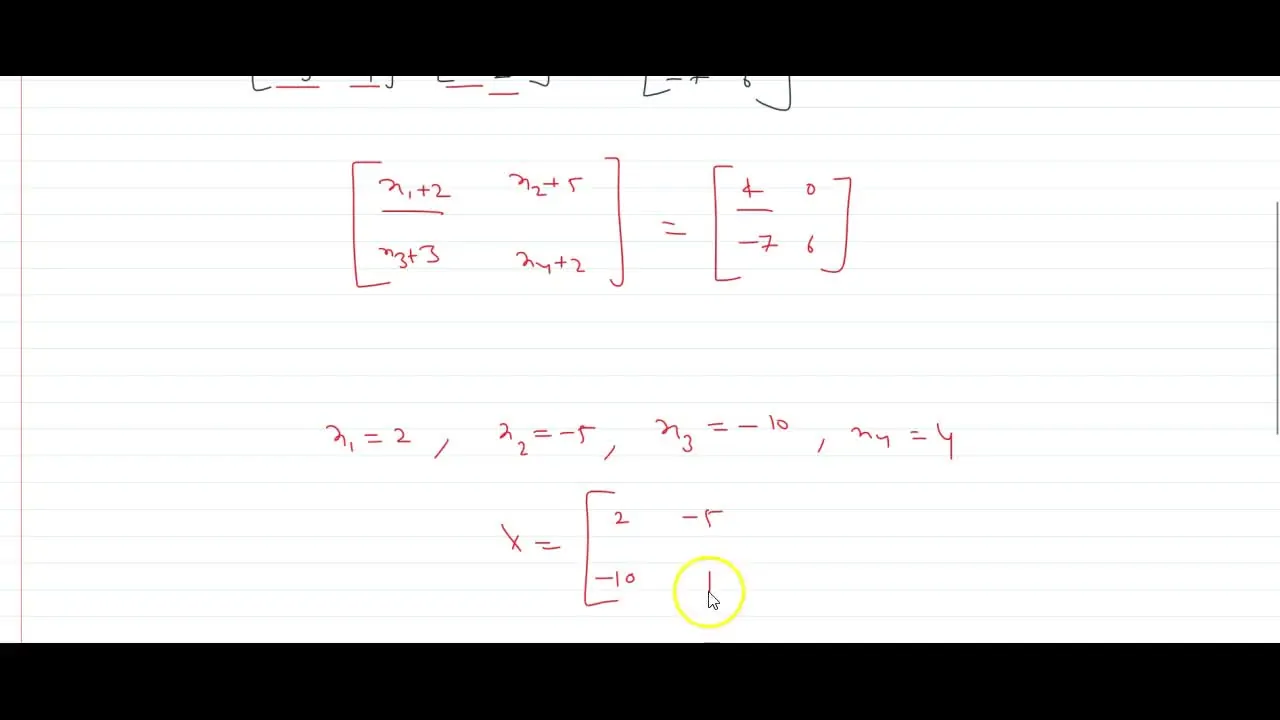 [x₁+2 x₂+5] = [4 0]
[x₃+3 x₄+2] [-7 6]
x₁ = 2 , x₂ = -5 , x₃ = -10 , x₄ = 4
X = [2 -5
-10